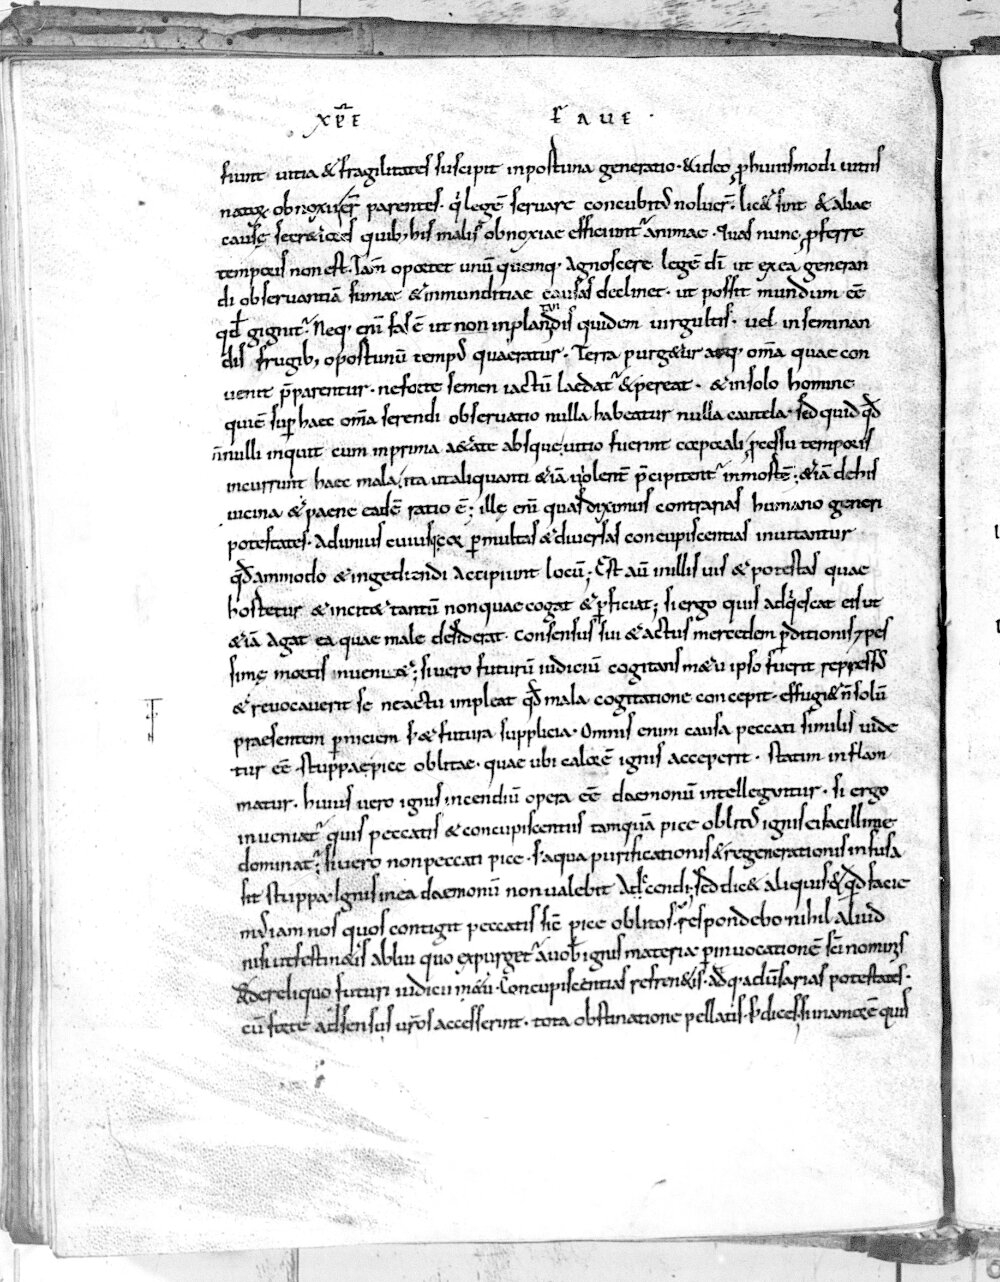 xp̄e fave·
fiunt vitia & fragilitates suscipit inpostuna generatio · & ideo p huiusmodi vitiis
obnoxii parentes · q legē servare concubitus noluer̄ · lic& sint & aliae
causę secr&iores quib; his malis obnoxiae efficiunt animae · Quas nunc pferre
temporis non est · Iam oportet unū quemq; agnoscere legē dī ut ex ea generan
di observantiā sumat & inmunditiae causas declinet · ut possit mundum ēē
qd gignit · Neq; enī fas ē ut non inplandis quidem virgultis · vel in seminan
dis frugib; oportunū temp; quaeratur · Terra purg&ur atq; om̄a quae con
venit p̄parentur · ne forte semen iactū laedat & pereat · & in solo homine
quē sup haec om̄a serendi observatio nulla habeatur nulla cautela · sed quid qd
n̄nulli inquit cum in prima a&ate absque vitio fuerint corporali pcessu temporis
incurrunt haec mala, ita ut aliquanti &iā violent p̄cipitent in mortē; &iā de his
vicina & paene eadē ratio ē; ille enī quas diximus contrarias humano generi
potestates · ad unius cuiusq; cor p multas & diversas concupiscentias invitantur
qdammodo & ingrediendi accipiunt locū; Est aū in illis vis & potestas quae
hort&ur & incit& tantū non quae cogat & pficiat; si ergo quis adqescat eis ut
&iā agat ea quae male desiderat · consensus sui & actus mercedem pditionis & pes
simę mortis inveni&; si vero futurū iudiciū cogitans m&u ipso fuerit repressus
& revocaverit se ne actu impleat qd mala cogitatione concepit · effugi& n̄ solū
praesentem pniciem s& futura supplicia · Omnis enim causa peccati similis vide
tur ēē stuppae pice oblitae · quae ubi calorē ignis acceperit · statim inflam
matur · huius vero ignis incendiū opera ēē daemonū intellegitur · si ergo
inveniat quis peccatis & concupiscentiis tamquā pice oblitus ignis ei facillime
dominat; si vero non peccati pice · s; aqua purificationis & regenerationis infusa
sit stuppa · Ignis in ea daemonū non valebit Adscendi; sed dic& aliquis & qd facie
mus iam nos quos contigit peccatis sic pice oblitos · respondebo nihil aliud
nisi ut festin&is ablui quo expurget a vob ignis materia · p invocationē sci nominis
& de reliquo futuri iudicii m&u · Concupiscentias refren&is · adq; adusarias potestates ·
cū forte ad sensus uros accesserint · tota obstinatione pellatis · s; dices · si in amorē quis